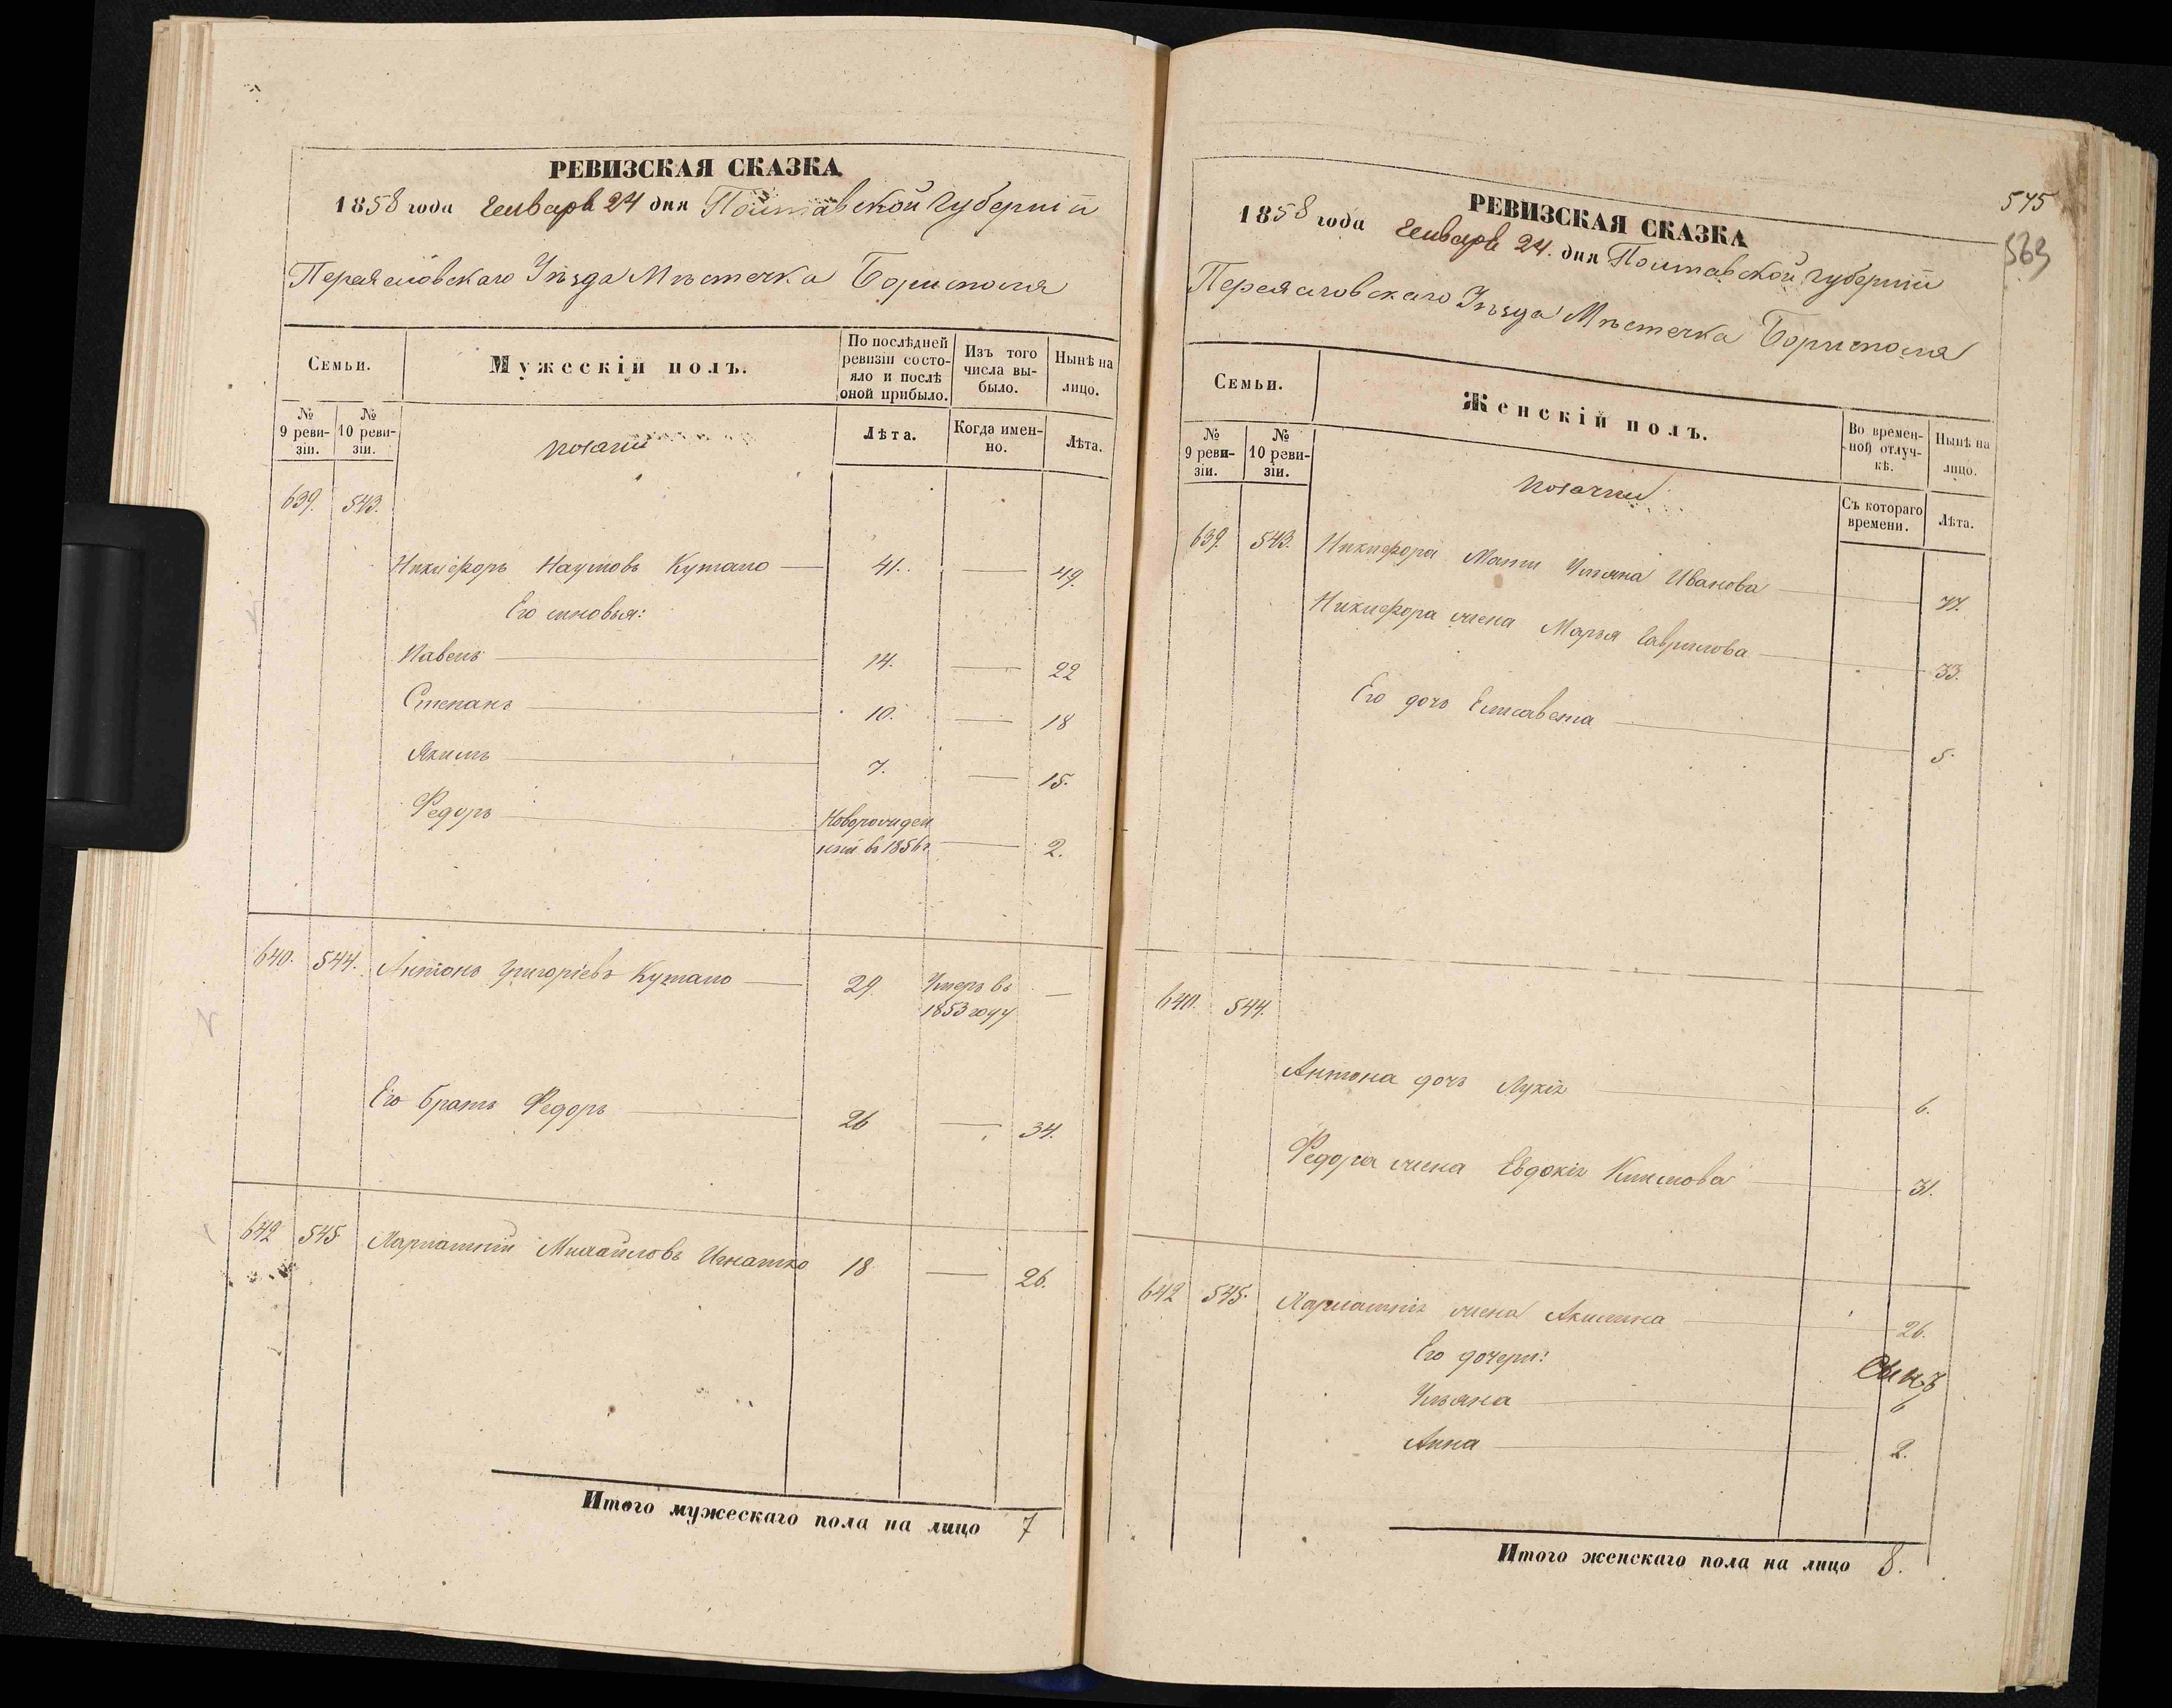 РЕВИЗСКАЯ СКАЗКА
1858 года Генваря 24 дня Полтавской Губерніи
Переясловскаго Уѣзда Мѣстечка Борисполя
Семьи.
Мужескій полъ.
По послѣдней ревизіи состояло и послѣ оной прибыло.
Изъ того числа выбыло.
Нынѣ на лицо.
№ 9 ревизіи.
№ 10 ревизіи.
Лѣта.
Когда именно.
Лѣта.
639. 543.
Никифоръ Наумовъ Кутало 41. — 49.
Его сыновья:
Павелъ 14. — 22
Степанъ 10. — 18
Якимъ 7. — 15.
Федоръ Новорожден
ный въ 1856 г — 2.
640. 544. Антонъ Григоріевъ Кутало 29. Умеръ въ —
1853 году
Его братъ Федоръ 26 — 34.
642 545 Харлампій Михайловъ Игнатко 18 — 26.
Итого мужескаго пола на лицо 7
575
569
РЕВИЗСКАЯ СКАЗКА
1858 года Генваря 24. дня Полтавской Губерніи
Переясловскаго Уѣзда Мѣстечка Борисполя
Семьи.
Женскій полъ.
Во временной отлучкѣ.
Нынѣ на лицо.
№ 9 ревизіи.
№ 10 ревизіи.
Съ котораго времени.
Лѣта.
639. 543. Никифора Мать Ульяна Иванова 77.
Никифора жена Марья Гаврилова 33.
Его дочь Елисавета 5.
640. 544.
Антона дочь Лукія 6.
Федора жена Евдокія Климова 31.
642 545. Харлампія жена Акилина 26.
Его дочери:
сынъ
Ульяна 6
Анна 2.
Итого женскаго пола на лицо 8.